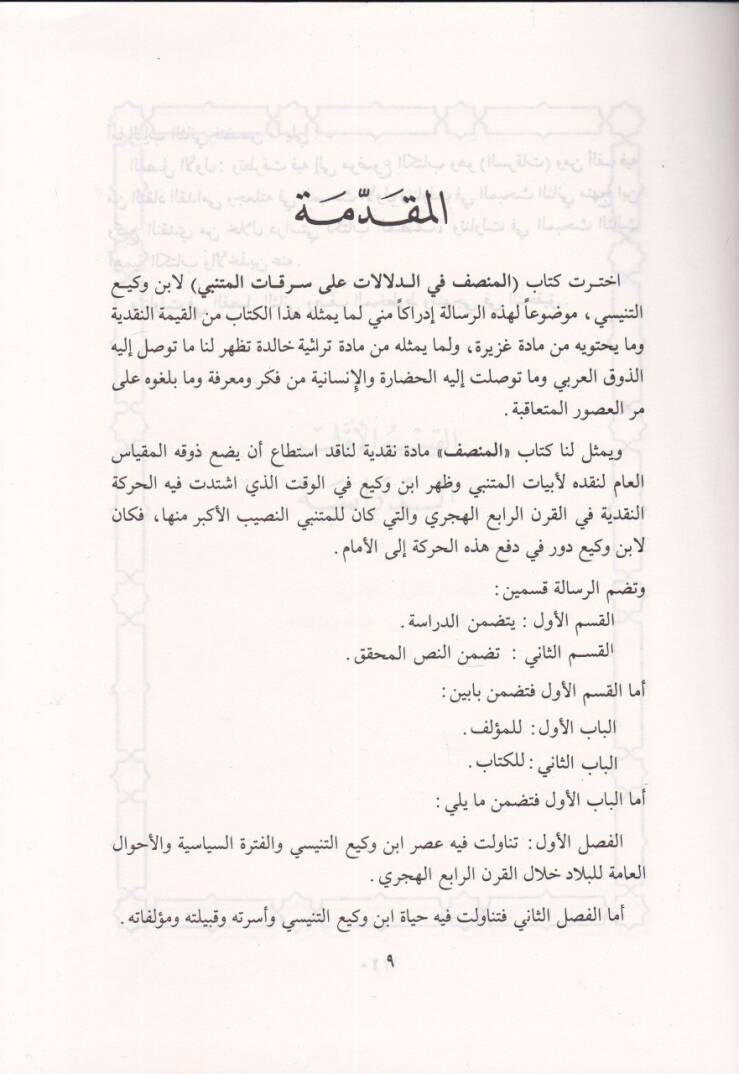 المقدّمة
اختـرت كتاب (المنصف في الـدلالات على سـرقـات المتنبي) لابن وكيـع
التنيسي، موضوعاً لهذه الرسالة إدراكاً مني لما يمثله هذا الكتاب من القيمة النقدية
وما يحتويه من مادة غزيرة، ولما يمثله من مادة تراثية خالدة تظهر لنا ما توصل إليه
الذوق العربي وما توصلت إليه الحضارة والإنسانية من فكر ومعرفة وما بلغوه على
مر العصور المتعاقبة.
ويمثل لنا كتاب «المنصف» مادة نقدية لناقد استطاع أن يضع ذوقه المقياس
العام لنقده لأبيات المتنبي وظهر ابن وكيع في الوقت الذي اشتدت فيه الحركة
النقدية في القرن الرابع الهجري والتي كان للمتنبي النصيب الأكبر منها، فكان
لابن وكيع دور في دفع هذه الحركة إلى الأمام.
وتضم الرسالة قسمين:
القسم الأول: يتضمن الدراسة.
القسـم الثاني: تضمن النص المحقق.
أما القسم الأول فتضمن بابين:
الباب الأول: للمؤلف.
الباب الثاني: للكتاب.
أما الباب الأول فتضمن ما يلي:
الفصل الأول: تناولت فيه عصر ابن وكيع التنيسي والفترة السياسية والأحوال
العامة للبلاد خلال القرن الرابع الهجري.
أما الفصل الثاني فتناولت فيه حياة ابن وكيع التنيسي وأسرته وقبيلته ومؤلفاته.
٩